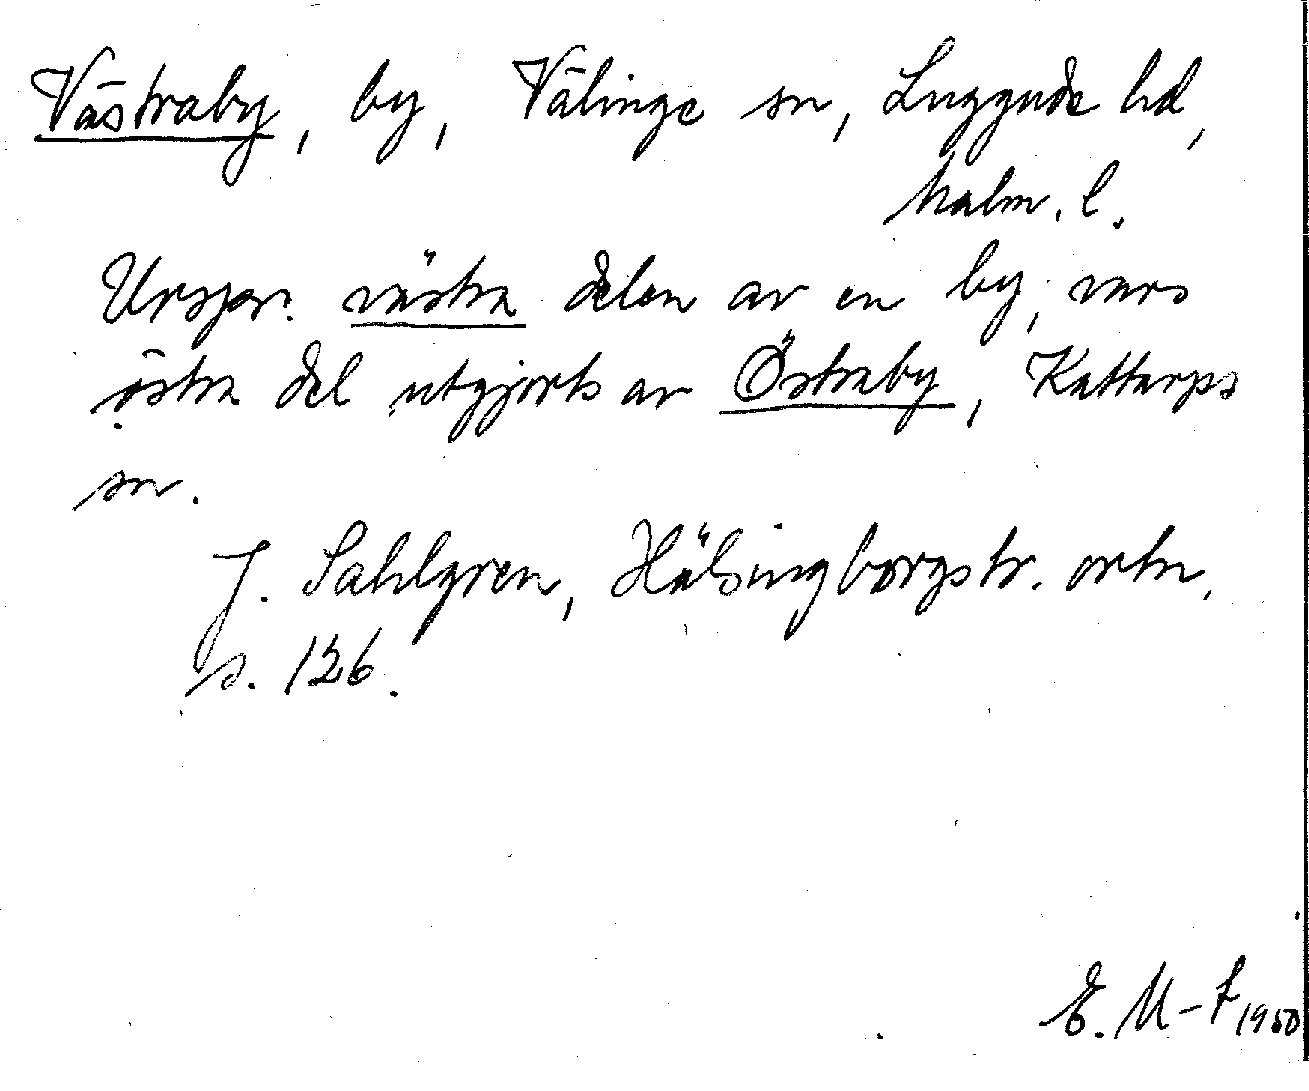 Västraby, by, Välinge sn, Luggude hd,
Malm. l.
Urspr. västra delen av en by, vars
östra del utgjorts av Östraby, Kattarps
sn.
J. Sahlgren, Hälsingborgstr. ortn.
s. 126.
E. M-F 1950